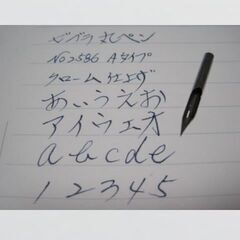 ゼブラ丸ペン
No2586 Aタイプ
クローム仕上げ
あいうえお
アイウエオ
abcde
12345